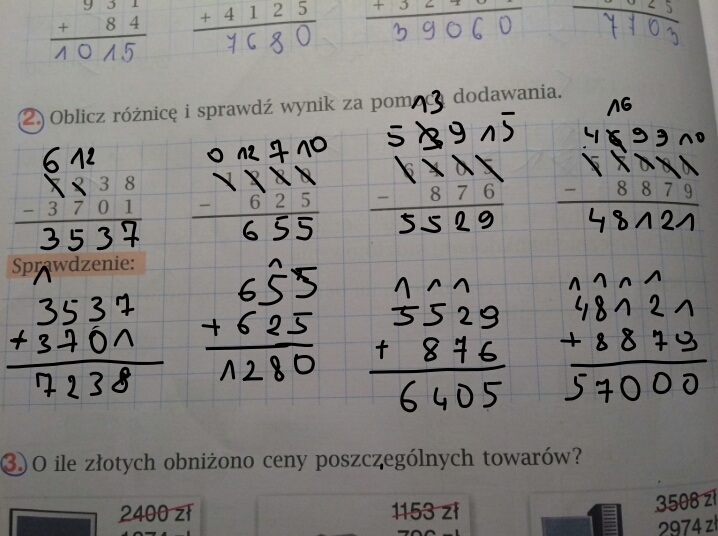 9 3 1
+ 8 4
1 0 1 5
+ 4 1 2 5
7 6 8 0
3 9 0 6 0
7 7 0 3
2. Oblicz różnicę i sprawdź wynik za pomocą dodawania.
6 12
7 2 3 8
- 3 7 0 1
3 5 3 7
0 12 7 10
1 2 8 0
- 6 2 5
6 5 5
13
5 3 9 15
6 4 0 5
- 8 7 6
5 5 2 9
16
4 6 9 9 10
5 7 0 0 0
- 8 8 7 9
4 8 1 2 1
Sprawdzenie:
1
3537
+3701
7238
1
655
+625
1280
1 1 1
5529
+ 876
6405
1 1 1 1
48121
+8879
57000
3. O ile złotych obniżono ceny poszczególnych towarów?
2400 zł
1153 zł
3508 zł
2974 zł